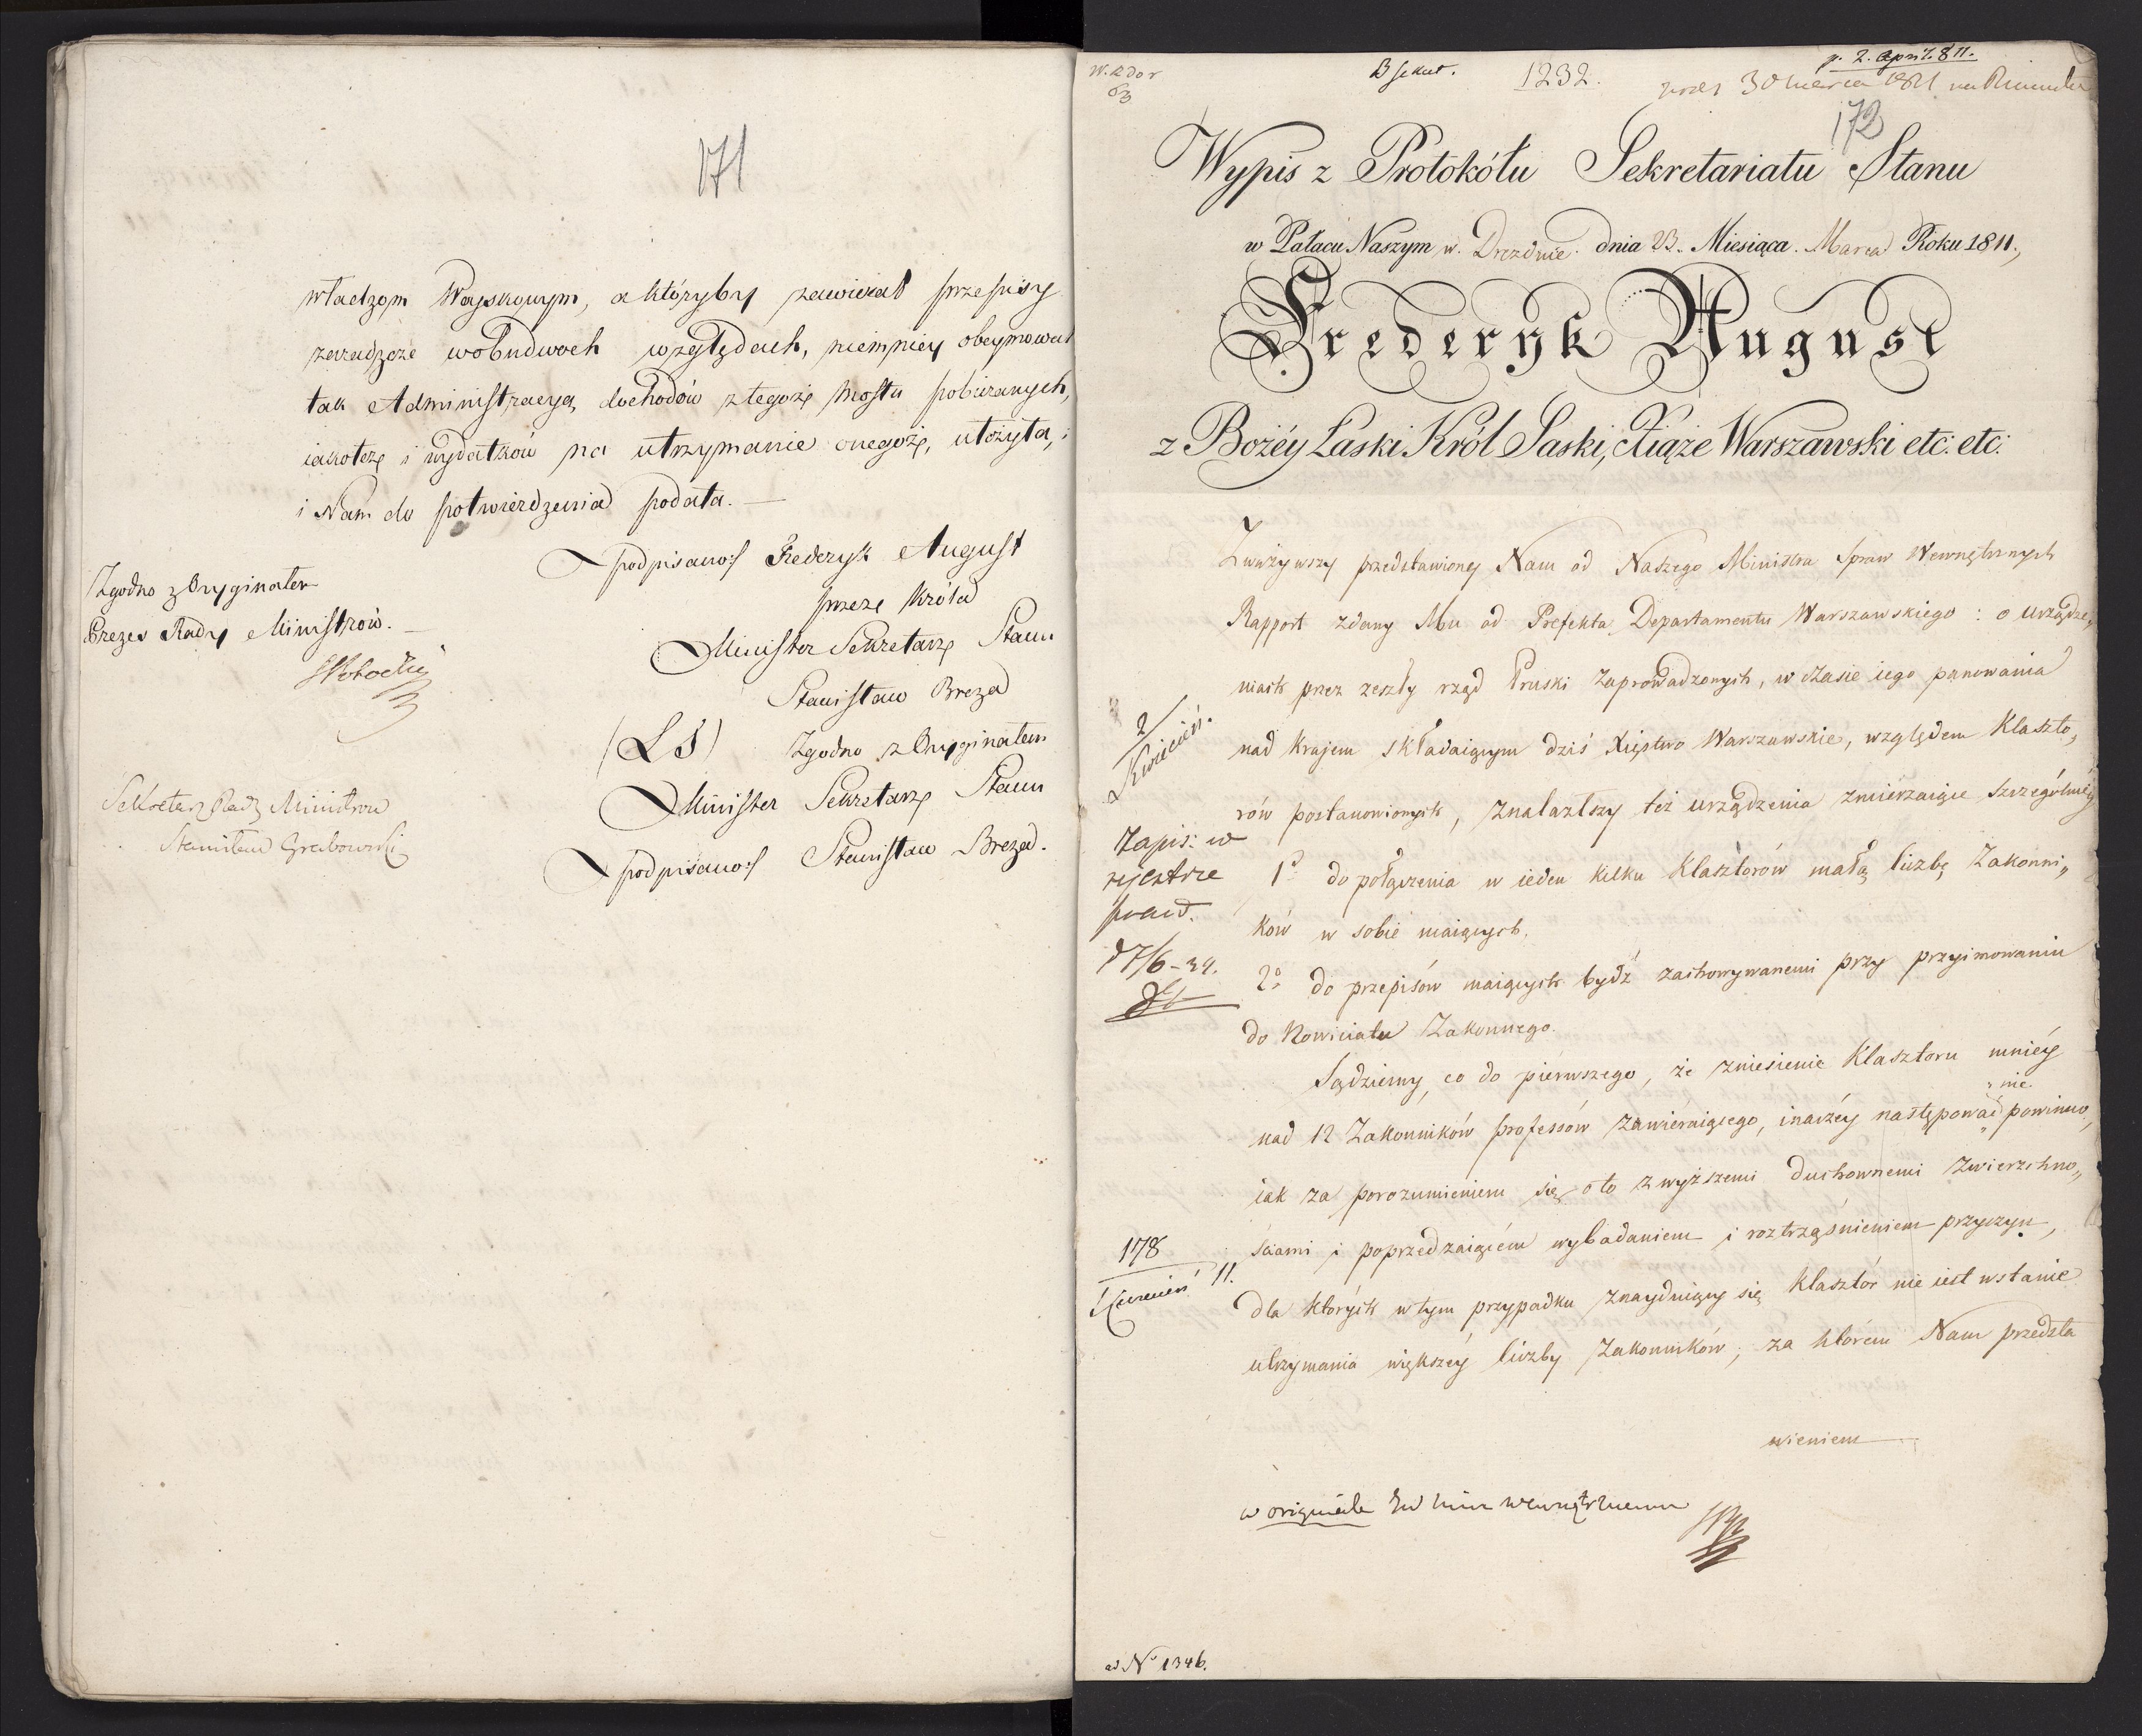 171
władzom Woyskowym, a któryby zawierał przepisy
zaradzcze wobudwoch względach, niemniey obeymował
tak Administracyą dochodów z tegoż Mostu pobieranych,
iakoteż i wydatków na utrzymanie onegoż, ułożyła,
i Nam do potwierdzenia podała. —
podpisano:/ Frederyk August
przez Króla
Minister Sekretarz Stanu
Stanisław Breza
(LS) Zgodno z Oryginałem
Minister Sekretarz Stanu
podpisano:/ Stanisław Breza.
Zgodno z Oryginałem
Prezes Rady Ministrów.
Sekretarz Rady Ministrów
Stanisław Grabowski
1232.
p. 2. April. 811.
30 Marca 1811
172
Wypis z Protokółu Sekretariatu Stanu
w Pałacu Naszym w. Dreznie. dnia 23. Miesiąca. Marca Roku 1811.,
Frederyk August
z Bożéy Łaski Król Saski, Xiąże Warszawski etc: etc:
Zważywszy przedstawioney Nam od Naszego Ministra Spraw Wewnętrznych
Rapport zdany Mu od Prefekta Departamentu Warszawskiego : o urządze„
niach przez zeszły rząd Pruski zaprowadzonych, w czasie iego panowania
nad Krajem składaiącym dziś Xięstwo Warszawskie, względem Klaszto„
rów postanowionych, znalazłszy też urządzenia zmierzaiące szczególniéy
1º do połączenia w ieden kilku Klasztorów małą liczbę Zakonni„
ków w sobie maiących.
2º do przepisów maiących bydź zachowywanemi przy przyimowaniu
do Nowiciatu Zakonnego.
Sądziemy, co do piérwszego, że zniesienie Klasztoru mniéy
„ nie.
nad 12 Zakonników professów zawieraiącego, inaczéy następować „ powinno,
iak za porozumieniem się oto z wyższemi duchownemi zwierzchno„
ściami i poprzedzaiącém wybadaniem i roztrząśnieniem przyczyn,
dla których w tym przypadku znayduiący się Klasztór nie iest wstanie
utrzymania większéy liczby Zakonników; za którém Nam przedsta
wieniem
2/
Kwiecień.
Zapis: w
rejestrze
praw.
d 7/6 - 34.
178
Czerwień 11.
w originale
ad Nº 1346.